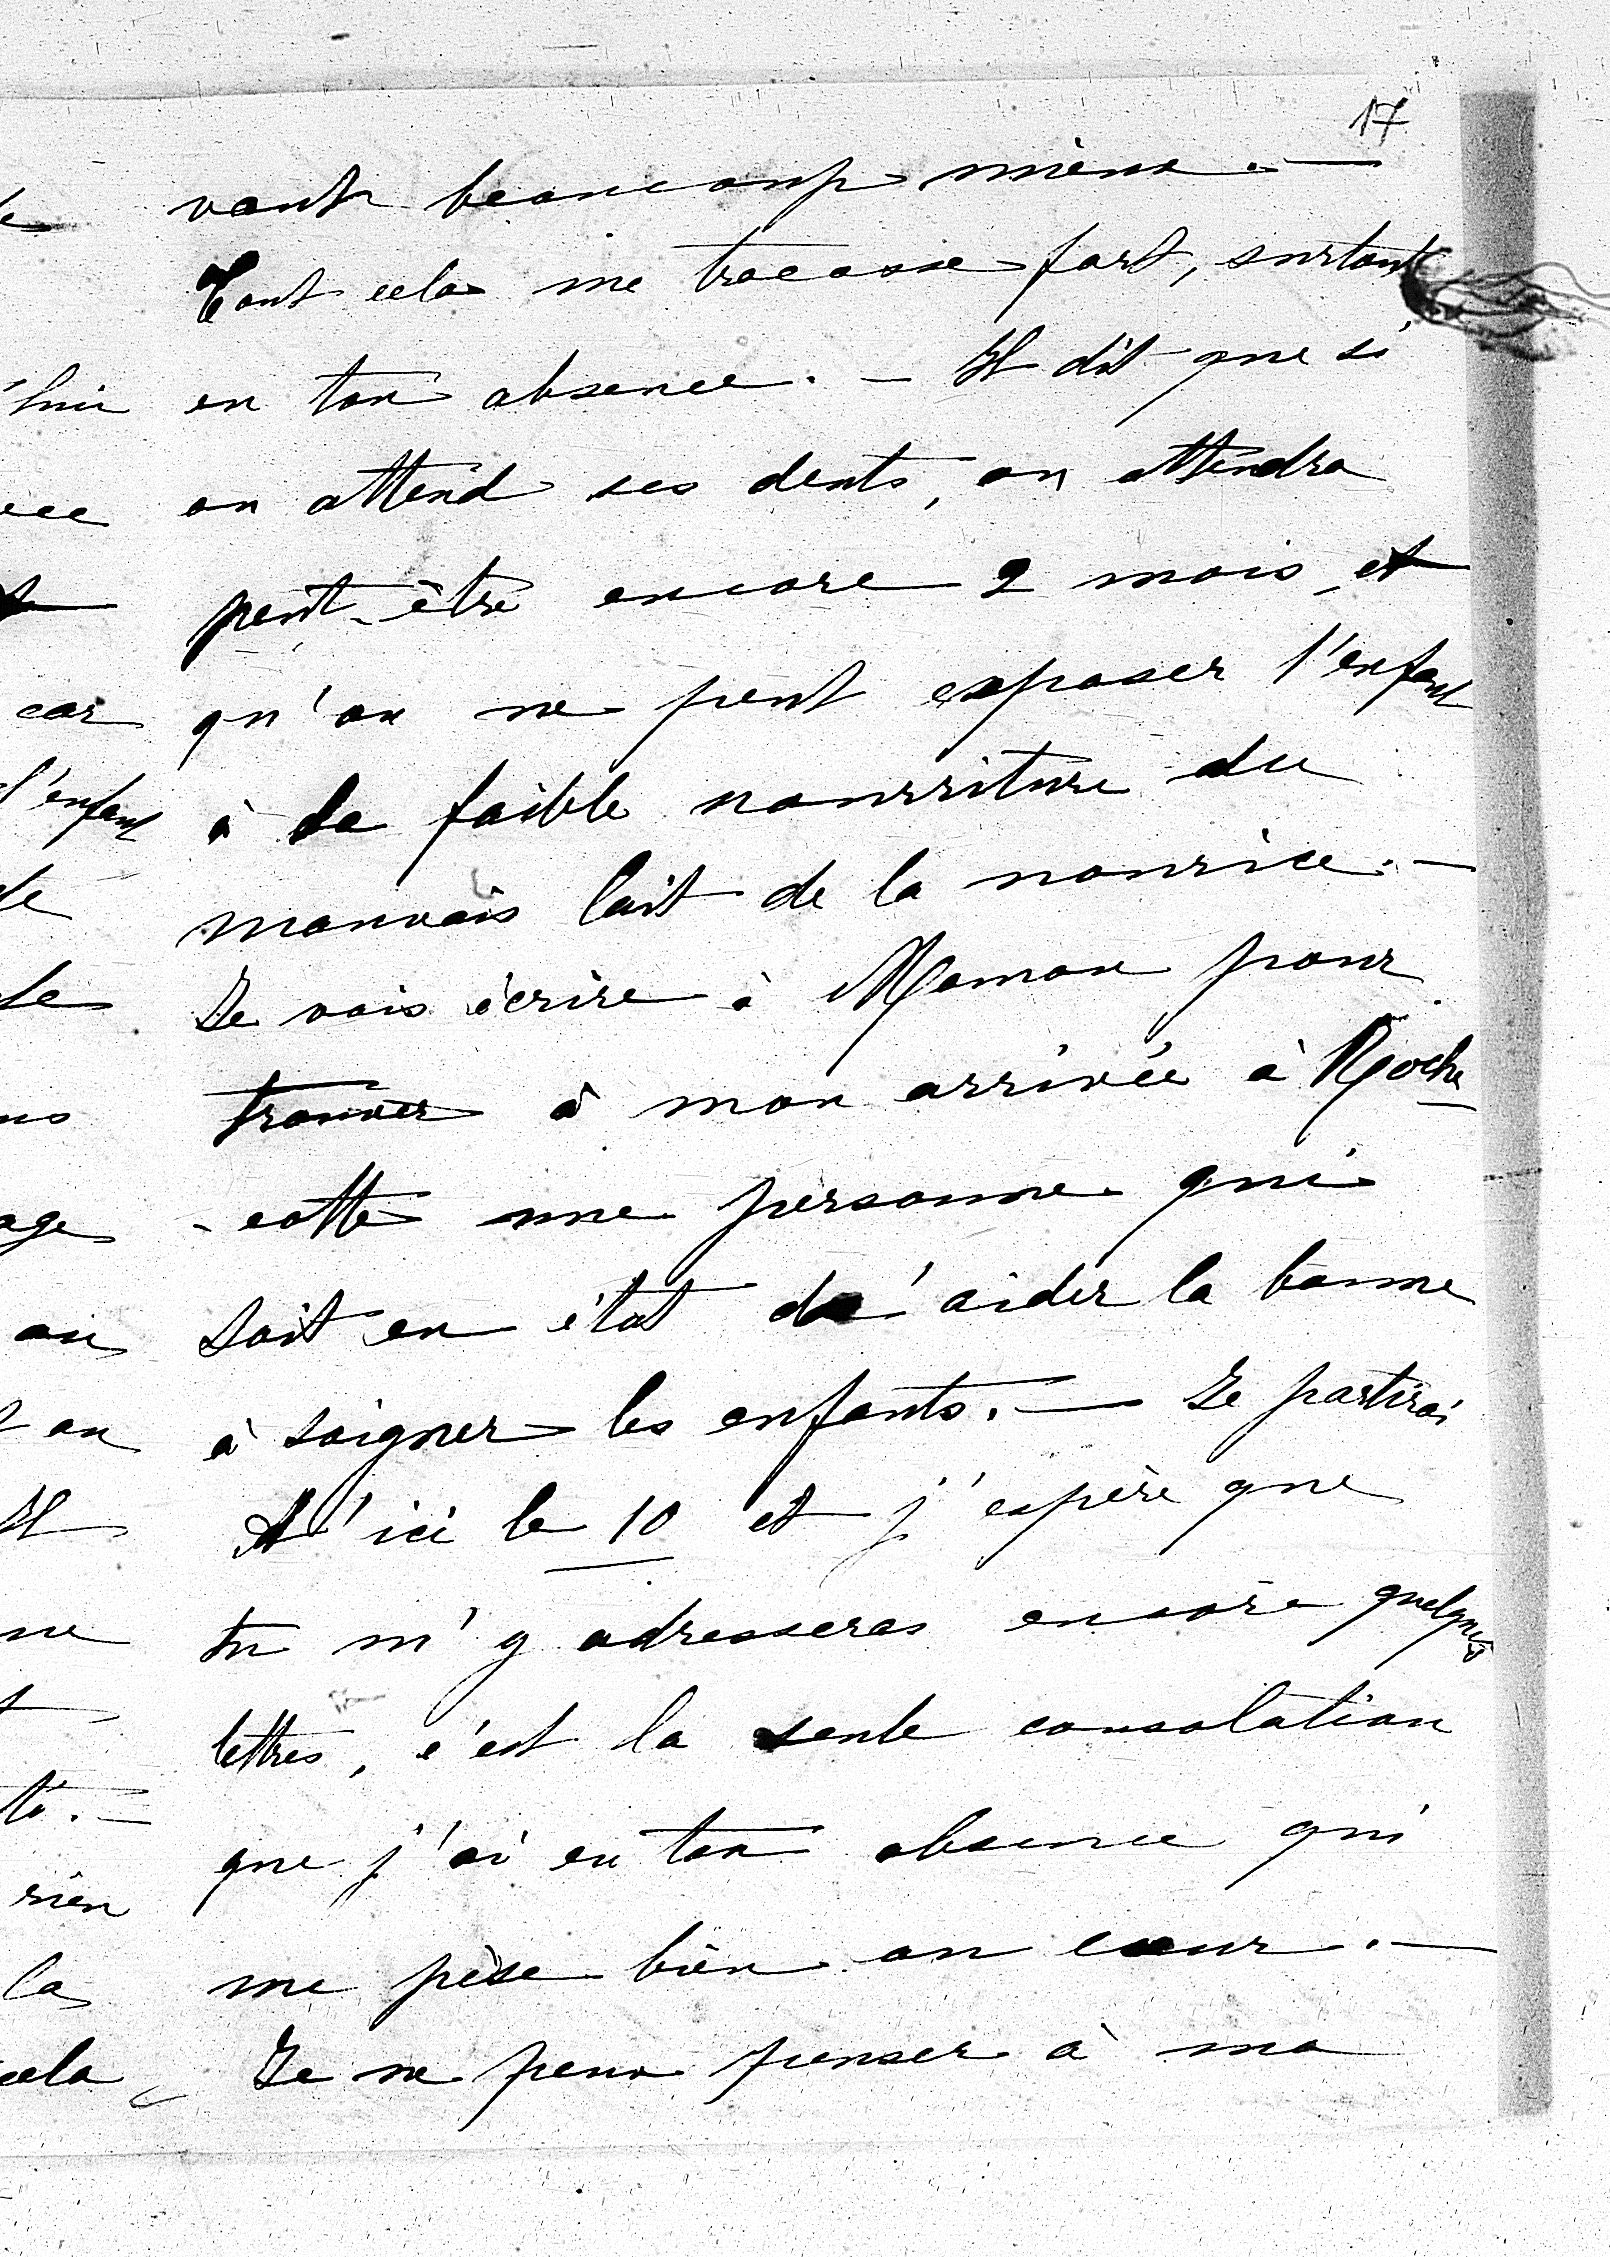 17
vaut beaucoup mieux. —
Tout cela me tracasse fort, surtout
en ton absence. — Il dit que si
on attend ses dents, on attendra
peut-être encore 2 mois, et
qu'on ne peut exposer l'enfant
à la faible nourriture du
mauvais lait de la nourrice. —
Je vais écrire à Maman pour
trouver à mon arrivée à Roche-
-cotte une personne qui
soit en état d'aider la bonne
à soigner les enfants. — Je partirai
d'ici le 10 et j'espère que
tu m'y adresseras encore quelques
lettres, c'est la seule consolation
que j'ai en ton absence qui
me pèse bien au cœur. —
Je ne peux penser à ma
car
l'enfant
de
age
ou
on
Il
rien
la
cela